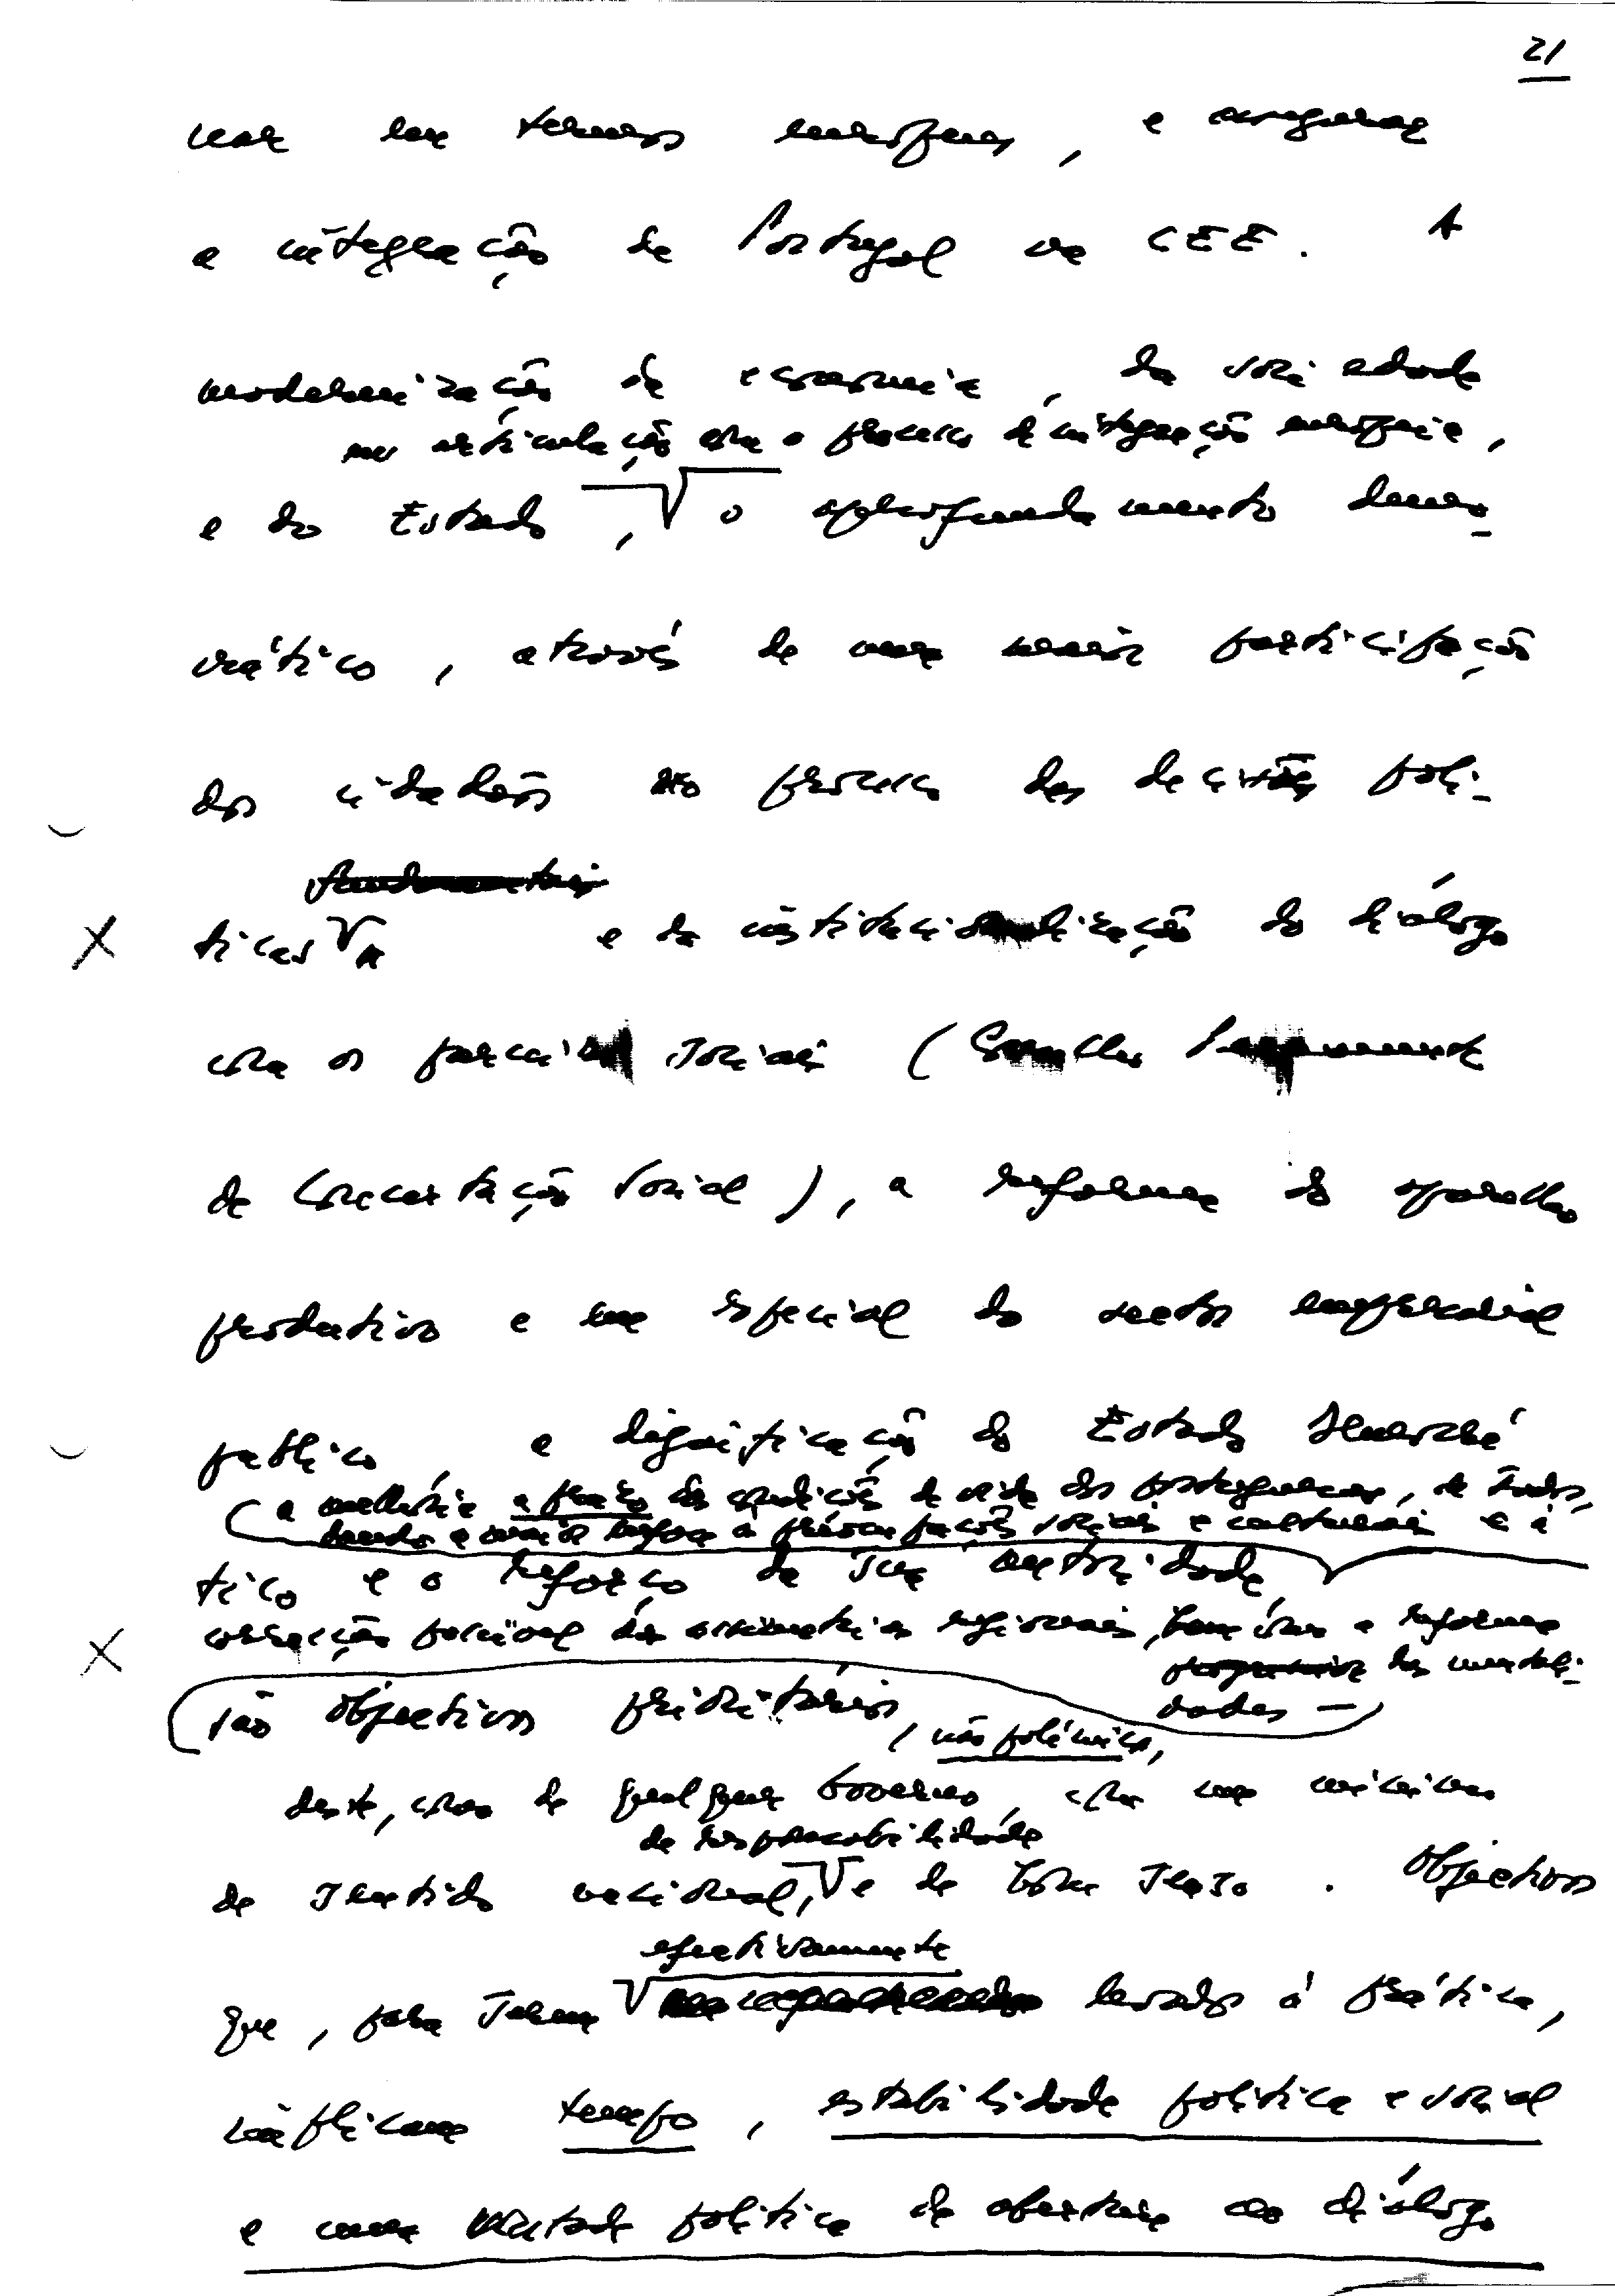 21
em termos europeus, e assegurar
a integração de Portugal na CEE. A
modernização da economia, da sociedade
na articulação com o processo de integração europeia,
e do Estado, o aprofundamento demo-
crático, através de uma maior participação
dos cidadãos no processo das decisões polí-
fundamentais
ticas e da institucionalização do diálogo
com os parceiros sociais (Conselho Permanente
de Concertação Social), a reforma do aparelho
produtivo e em especial do sector empresarial
público, a dignificação do Estado democrá-
a melhoria a prazo das condições de vida dos portugueses, de todos,
dando a maior ênfase às preocupações sociais e culturais e à
tico e o reforço da sua autoridade
correcção parcial das assimetrias regionais, bem como a reforma
progressiva das mentali-
dades —
são objectivos prioritários, não polémicos,
deste, como de qualquer Governo, com um mínimo
de responsabilidade
de sentido nacional, e de bom senso. Objectivos
efectivamente
que, para serem levados à prática,
implicam tempo, estabilidade política e social
e uma vontade política de abertura ao diálogo